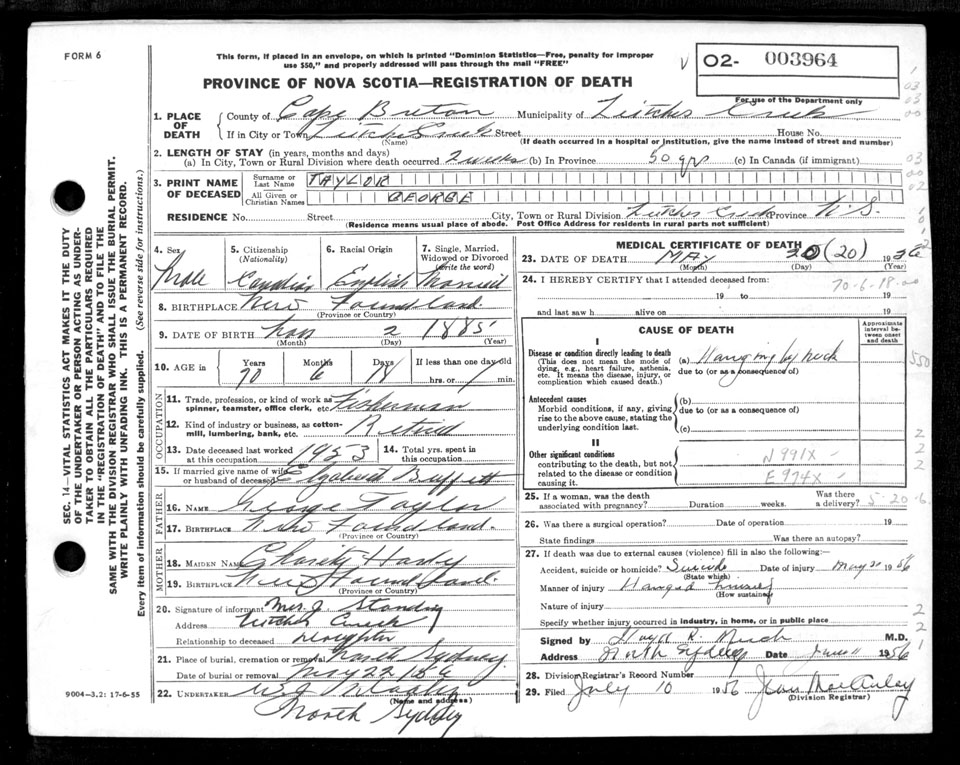 FORM 6
This form, if placed in an envelope, on which is printed "Dominion Statistics—Free, penalty for improper
use $50," and properly addressed will pass through the mail "FREE"
PROVINCE OF NOVA SCOTIA—REGISTRATION OF DEATH
V 02- 003964
For use of the Department only
1. PLACE OF DEATH
County of Cape Breton Municipality of
If in City or Town Street House No.
(Name) (If death occurred in a hospital or institution, give the name instead of street and number)
2. LENGTH OF STAY (in years, months and days)
(a) In City, Town or Rural Division where death occurred 2 weeks (b) In Province 50 yrs (c) In Canada (if immigrant)
3. PRINT NAME OF DECEASED
Surname or Last Name TAYLOR
All Given or Christian Names GEORGE
RESIDENCE No. Street City, Town or Rural Division Province N.S.
(Residence means usual place of abode. Post Office Address for residents in rural parts not sufficient)
4. Sex Male
5. Citizenship (Nationality)
6. Racial Origin English
7. Single, Married, Widowed or Divorced (write the word) Married
8. BIRTHPLACE New Foundland.
(Province or Country)
9. DATE OF BIRTH Nov 2 1885
(Month) (Day) (Year)
10. AGE in Years Months Days If less than one day old
70 6 18 hrs. or min.
OCCUPATION
11. Trade, profession, or kind of work as spinner, teamster, office clerk, etc. Fisherman
12. Kind of industry or business, as cotton-mill, lumbering, bank, etc. Retired
13. Date deceased last worked at this occupation 1953
14. Total yrs. spent in this occupation
15. If married give name of wife or husband of deceased Elizabeth Buffett
FATHER
16. NAME George Taylor
17. BIRTHPLACE New Foundland.
(Province or Country)
MOTHER
18. MAIDEN NAME Charity Hardy
19. BIRTHPLACE New Foundland.
(Province or Country)
20. Signature of informant Mrs. J.
Address Creek
Relationship to deceased Daughter
21. Place of burial, cremation or removal North Sydney
Date of burial or removal May 22
22. UNDERTAKER
(Name and address)
North Sydney
9004—3.2: 17-6-55
SEC. 14—VITAL STATISTICS ACT MAKES IT THE DUTY
OF THE UNDERTAKER OR PERSON ACTING AS UNDER-
TAKER TO OBTAIN ALL THE PARTICULARS REQUIRED
IN THE "REGISTRATION OF DEATH" AND TO FILE THE
SAME WITH THE DIVISION REGISTRAR WHO SHALL ISSUE THE BURIAL PERMIT.
WRITE PLAINLY WITH UNFADING INK. THIS IS A PERMANENT RECORD.
Every item of information should be carefully supplied. (See reverse side for instructions.)
MEDICAL CERTIFICATE OF DEATH
23. DATE OF DEATH MAY 20 (20) 1956
(Month) (Day) (Year)
24. I HEREBY CERTIFY that I attended deceased from:
70-6-18
19 to 19
and last saw h alive on 19
CAUSE OF DEATH
Approximate interval between onset and death
I
Disease or condition directly leading to death
(This does not mean the mode of dying, e.g., heart failure, asthenia, etc. It means the disease, injury, or complication which caused death.)
(a) Hanging by neck
due to (or as a consequence of)
Antecedent causes
Morbid conditions, if any, giving rise to the above cause, stating the underlying condition last.
(b)
due to (or as a consequence of)
(c)
II
Other significant conditions
contributing to the death, but not related to the disease or condition causing it.
N 991X
E 974X
25. If a woman, was the death associated with pregnancy? Duration weeks. Was there a delivery? 5-20-6
26. Was there a surgical operation? Date of operation 19
State findings Was there an autopsy?
27. If death was due to external causes (violence) fill in also the following:—
Accident, suicide or homicide? Suicide Date of injury May 20 1956
(State which)
Manner of injury Hanged himself
(How sustained)
Nature of injury
Specify whether injury occurred in industry, in home, or in public place
Signed by M.D.
Address North Sydney Date June 11 1956
28. Division Registrar's Record Number
29. Filed July 10 1956
(Division Registrar)